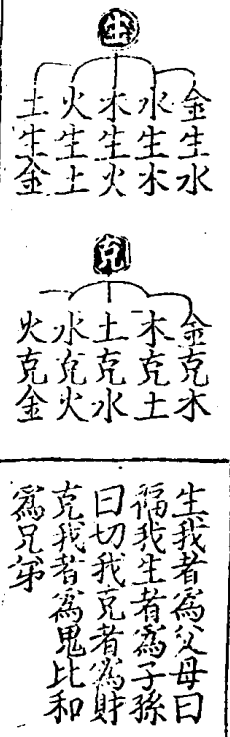 生
金生水
水生木
木生火
火生土
土生金
克
金克木
木克土
土克水
水克火
火克金
生我者爲父母曰
福我生者爲子孫
曰切我克者爲財
克我者爲鬼比和
爲兄弟